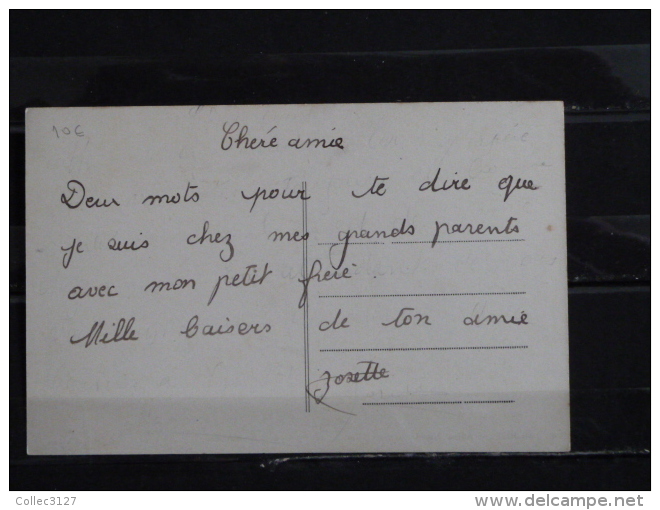 10€
Cheré amie
Deux mots pour te dire que
je suis chez mes grands parents
avec mon petit freré.
Mille baisers de ton amie
Josette
Collec3127
www.delcampe.net